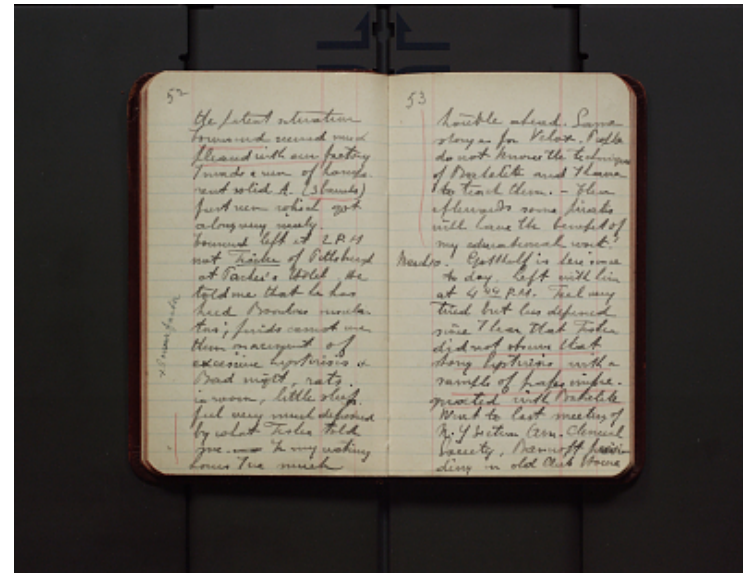 52
the patent situation
Townsend seemed much
pleased with our factory
I made a run of transpa-
rent solid A. (3 barrels)
first run which got
along very nicely.
Townsend left at 2 P.M
met Fischer of Pittsburg
at Parker's Hotel. He
told me that he has
used Bamboo insula-
tors; finds cannot use
them on account of
excessive hysteresis x
Bad night, rats
in room, little sleep.
feel very much depressed
by what Fischer told
me. In my waking
hours I see much
x Power factor
53
trouble ahead. Same
story as for Velox. People
do not know the technique
of Bakelite and I have
to teach them. - Then
afterwards some pirates
will have the benefit of
my educational work.
Gotthelf is here since
to day. Left with him
at 4 P.M. Feel very
tired but less depressed
since I hear that Fischer
did not observe that
strong hysteresis with a
sample of paper impre-
gnated with Bakelite
Went to last meeting of
N.Y Section Am. Chemical
Society, Bancroft presi-
ding in old Club House